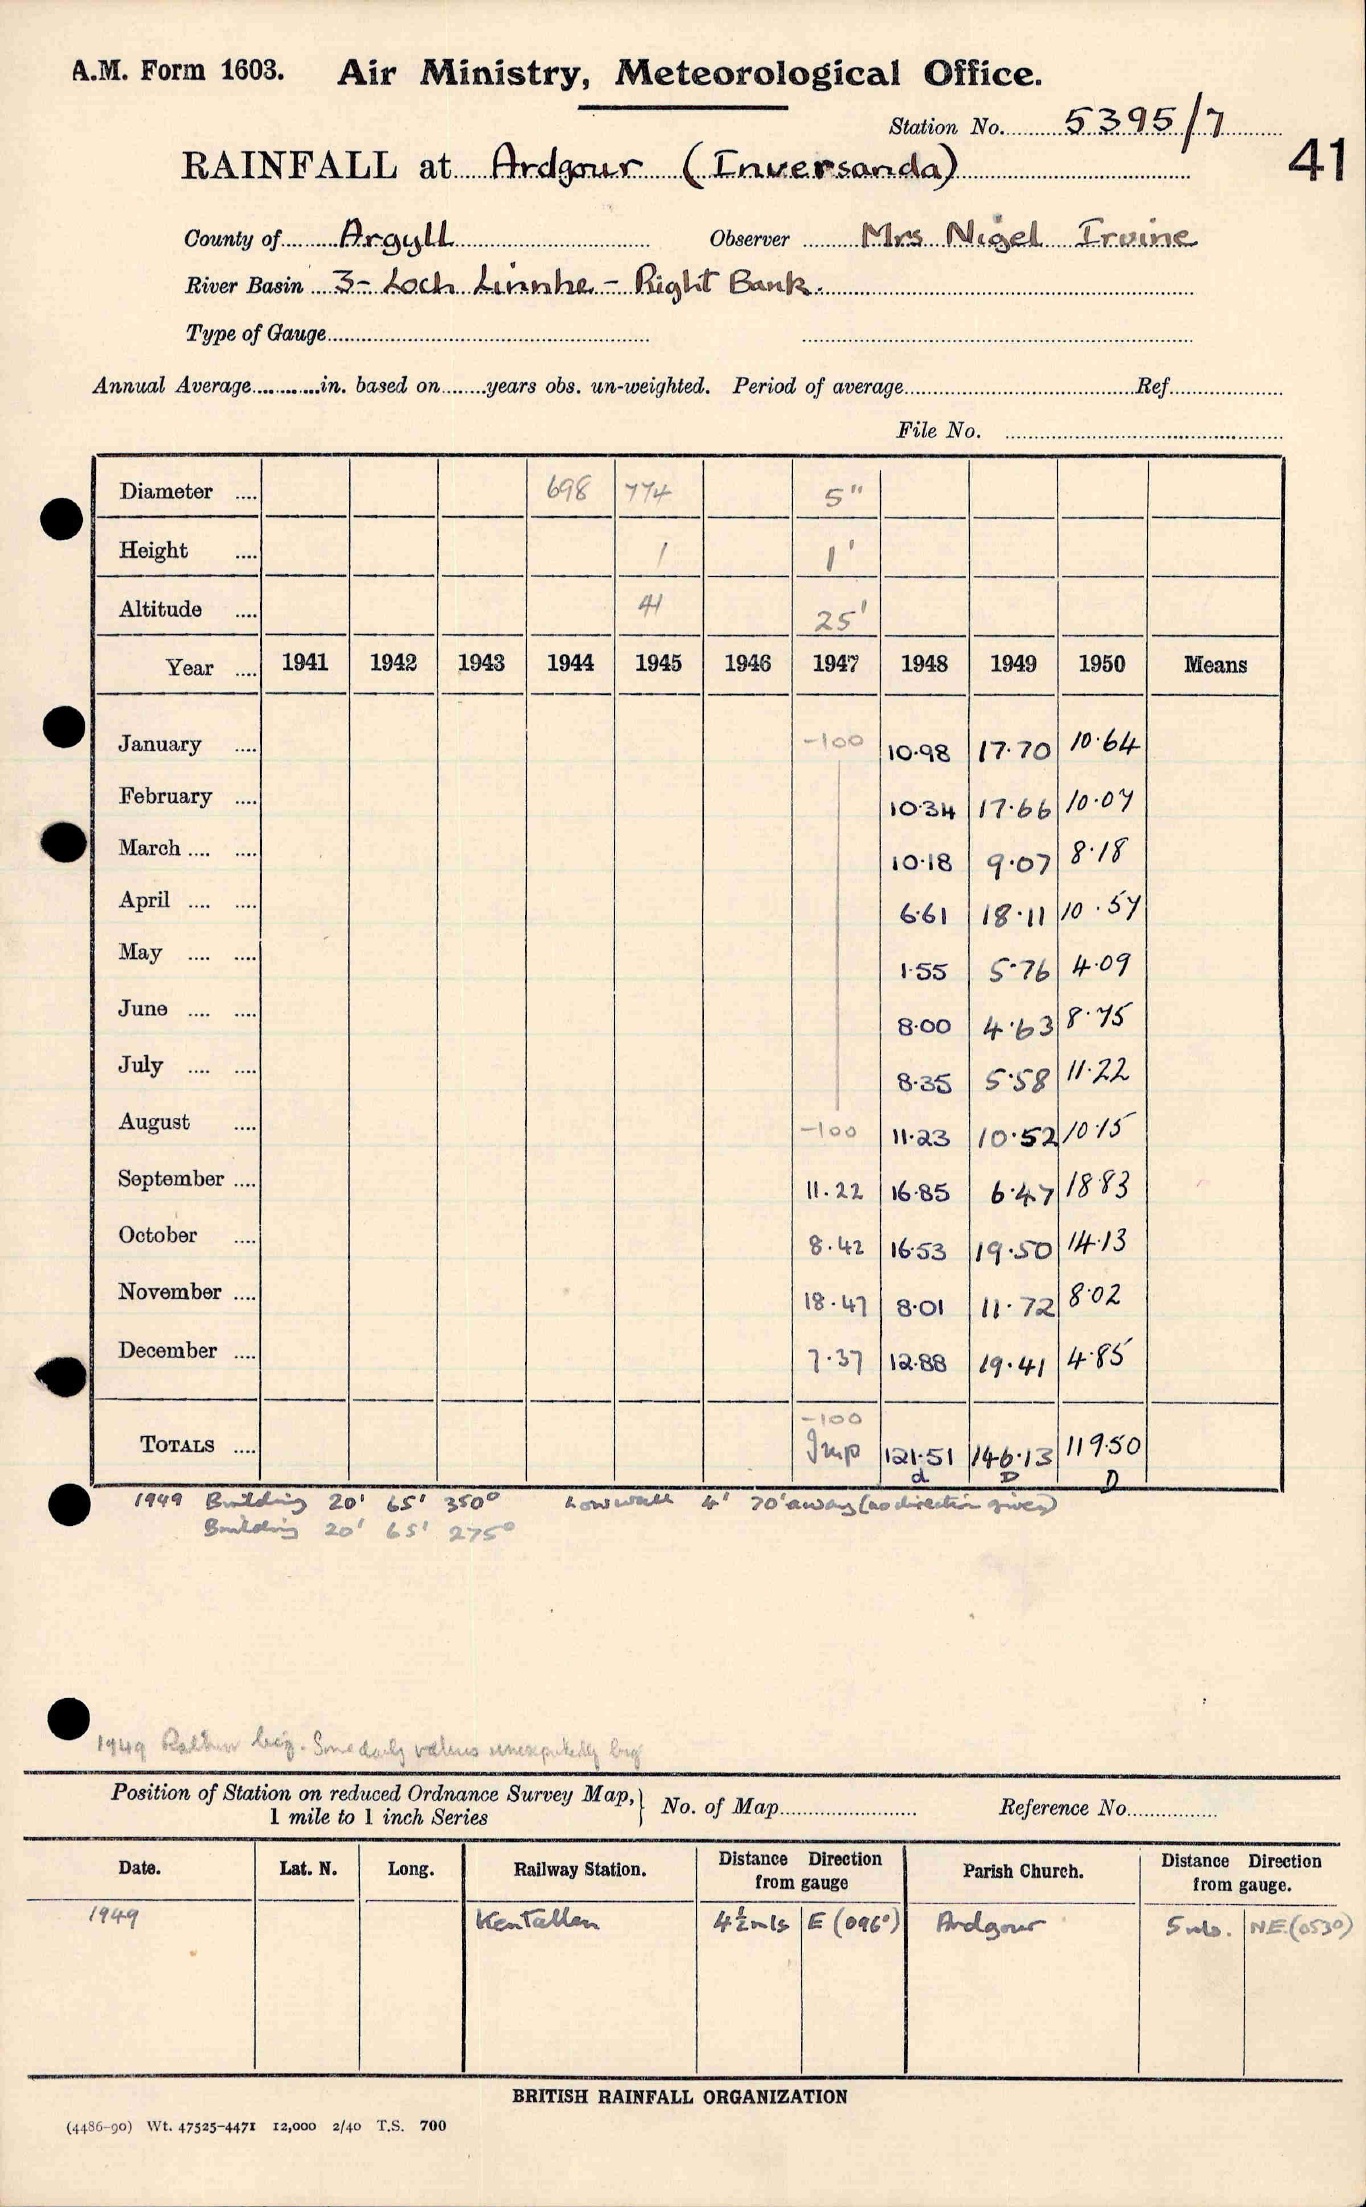 A.M. Form 1603. Air Ministry, Meteorological Office.
Station No. 5395/7
41
RAINFALL at Ardgour (Inversanda)
County of Argyll Observer Mrs Nigel Irvine
River Basin 3- Loch Linnhe - Right Bank.
Type of Gauge
Annual Average in. based on years obs. un-weighted. Period of average Ref.
File No.
Diameter .... 698 774 5"
Height .... 1 1'
Altitude .... 41 25'
Year .... 1941 1942 1943 1944 1945 1946 1947 1948 1949 1950 Means
January .... -100 10.98 17.70 10.64
February .... 10.34 17.66 10.07
March .... .... 10.18 9.07 8.18
April .... .... 6.61 18.11 10.57
May .... .... 1.55 5.76 4.09
June .... .... 8.00 4.63 8.75
July .... .... 8.35 5.58 11.22
August .... -100 11.23 10.52 10.15
September .... 11.22 16.85 6.47 18.83
October .... 8.42 16.53 19.50 14.13
November .... 18.47 8.01 11.72 8.02
December .... 7.37 12.88 19.41 4.85
-100
TOTALS .... Imp 121.51 146.13 119.50
d D D
1949 Building 20' 65' 350° Low wall 4' 70' away (no direction given)
Building 20' 65' 275°
1949 Rather big. Some daily values unexpectedly big
Position of Station on reduced Ordnance Survey Map, 1 mile to 1 inch Series } No. of Map Reference No.
Date. Lat. N. Long. Railway Station. Distance Direction from gauge Parish Church. Distance Direction from gauge.
1949 Kentallen 4½ mls E (096°) Ardgour 5 mls. NE (053°)
BRITISH RAINFALL ORGANIZATION
(4486-90) Wt. 47525-4471 12,000 2/40 T.S. 700